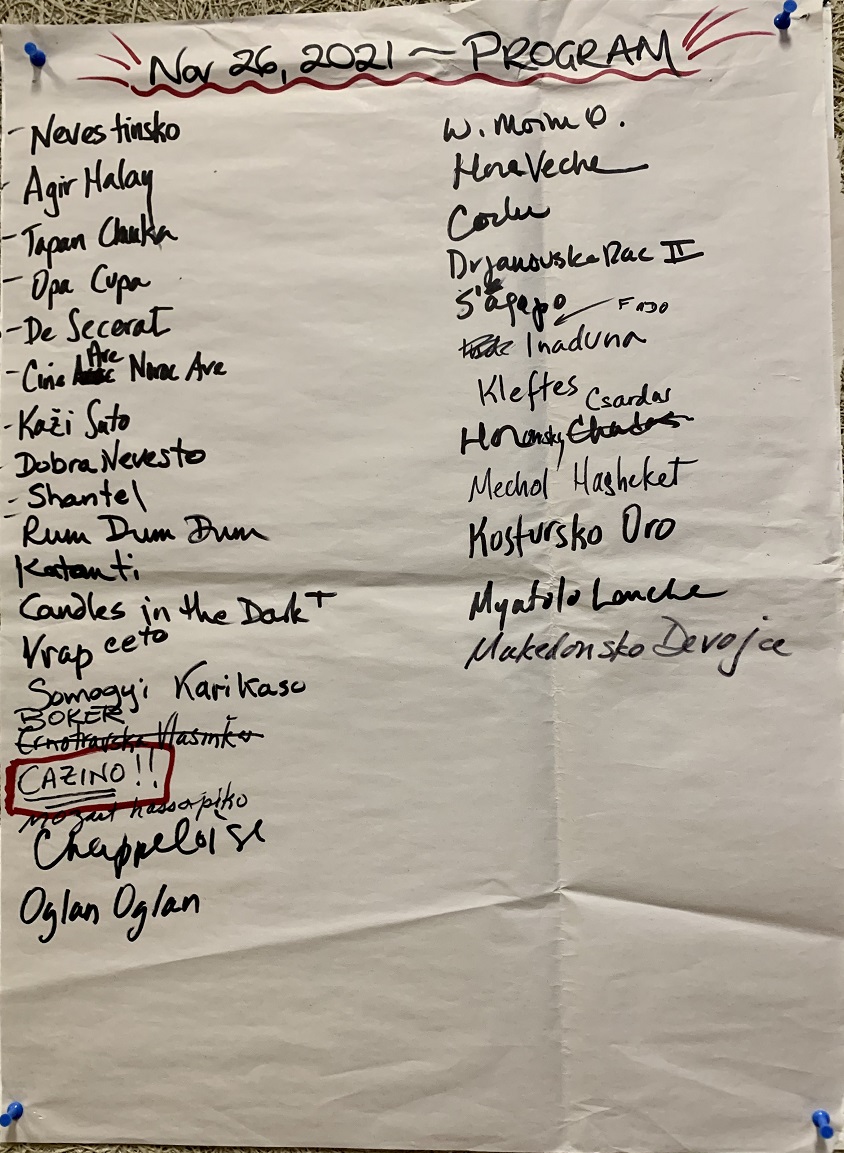 Nov 26, 2021 ~ PROGRAM
- Nevestinsko
- Agir Halay
- Tapan Chuka
- Opa Cupa
- De Secerat
- Cine Are Noroc Are
- Kaži Sato
Dobra Nevesto
- Shantel
- Rum Dum Dum
Katanti
Candles in the Dark T
Vrapceto
Somogyi Karikaso
BOKER
Ernotravska Vlasinka
CAZINO!!
Mozart hassapiko
Chappeloise
Oglan Oglan
W. Morim O.
Hora Veche
Cocku
Drjanovska Rac II
S'agapo
FADO
Inaduna
Kleftes
Csardas
Horonsky
Mechol Hasheket
Kostursko Oro
Myatolo Lenche
Makedonsko Devojce